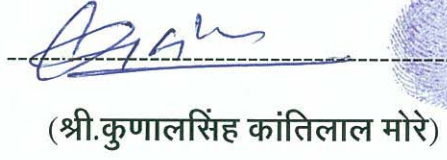 (श्री.कुणालसिंह कांतिलाल मोरे)